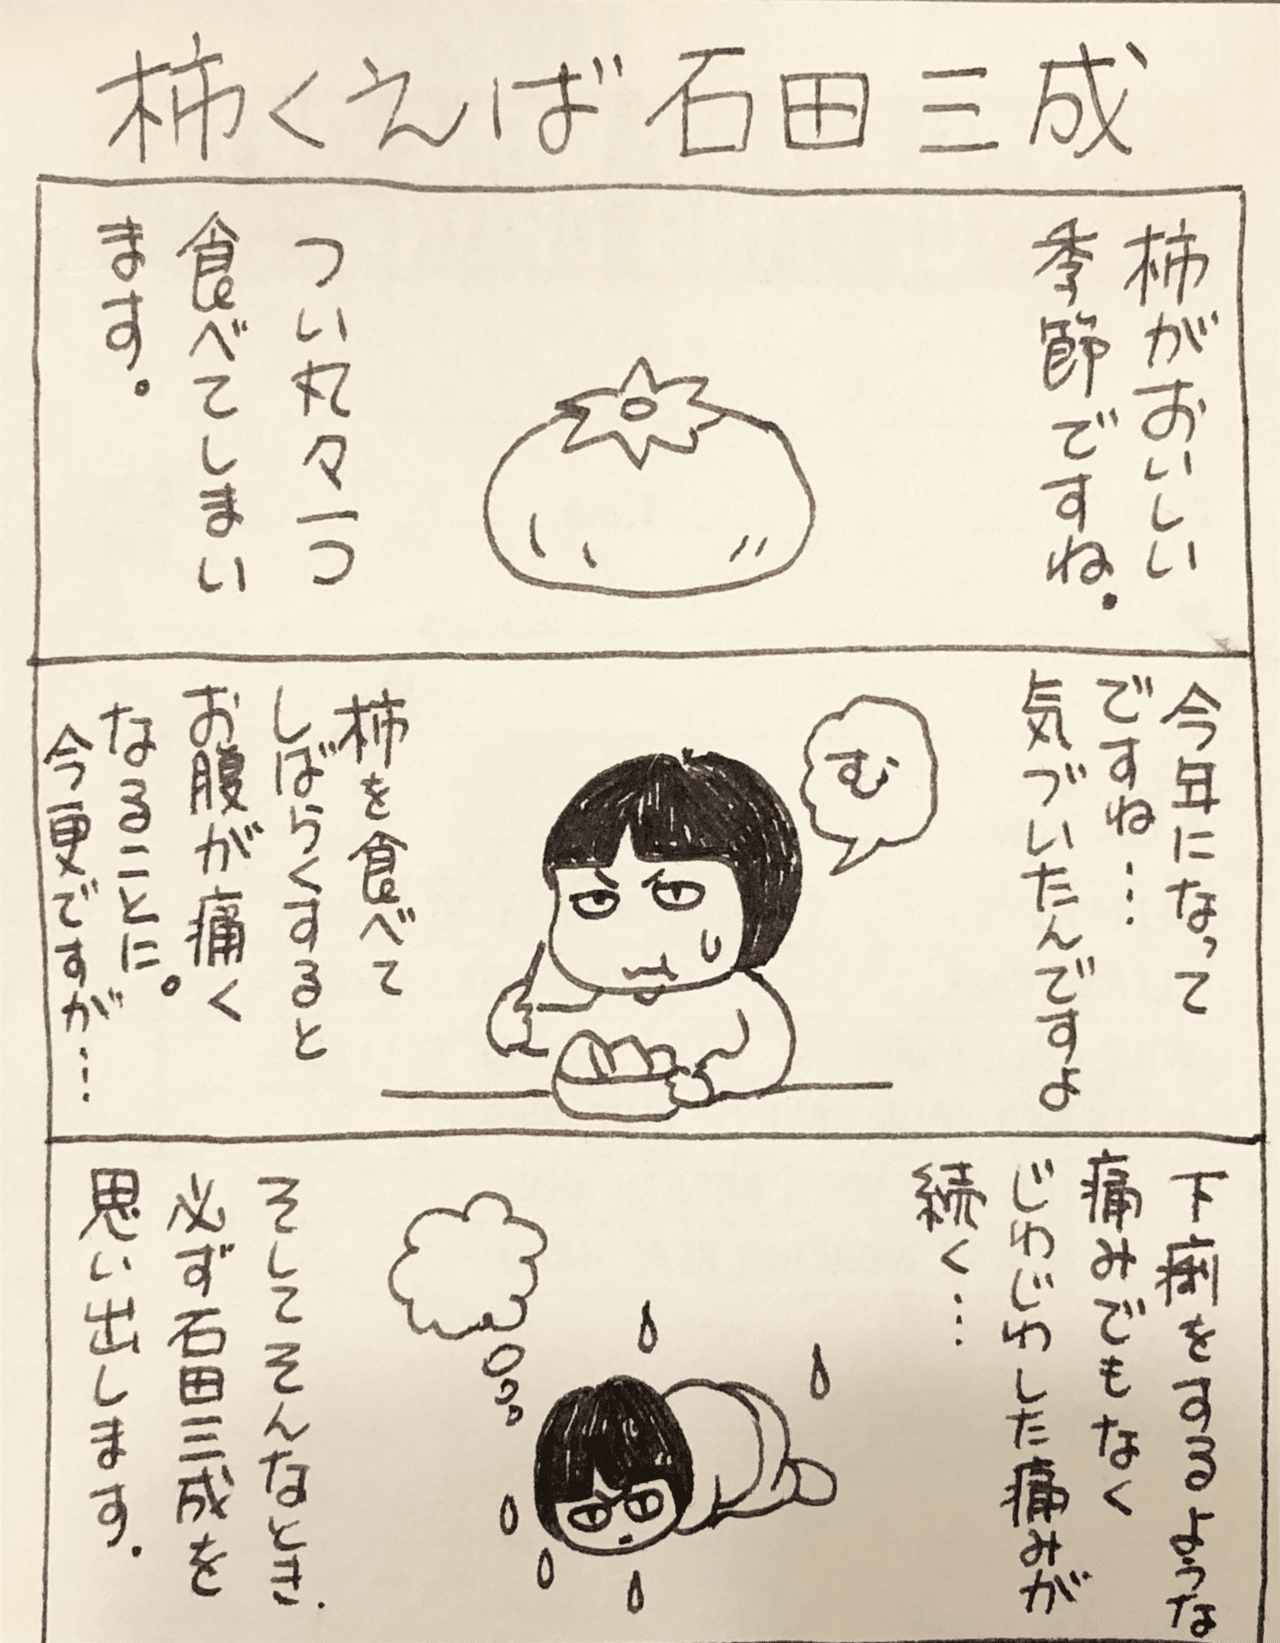 柿くえば石田三成
柿がおいしい
季節ですね。
つい丸々一つ
食べてしまい
ます。
今年になって
ですね…
気づいたんですよ
む
柿を食べて
しばらくすると
お腹が痛く
なることに。
今更ですが…
下痢をするような
痛みでもなく
じわじわした痛みが
続く…
そしてそんなとき、
必ず石田三成を
思い出します。